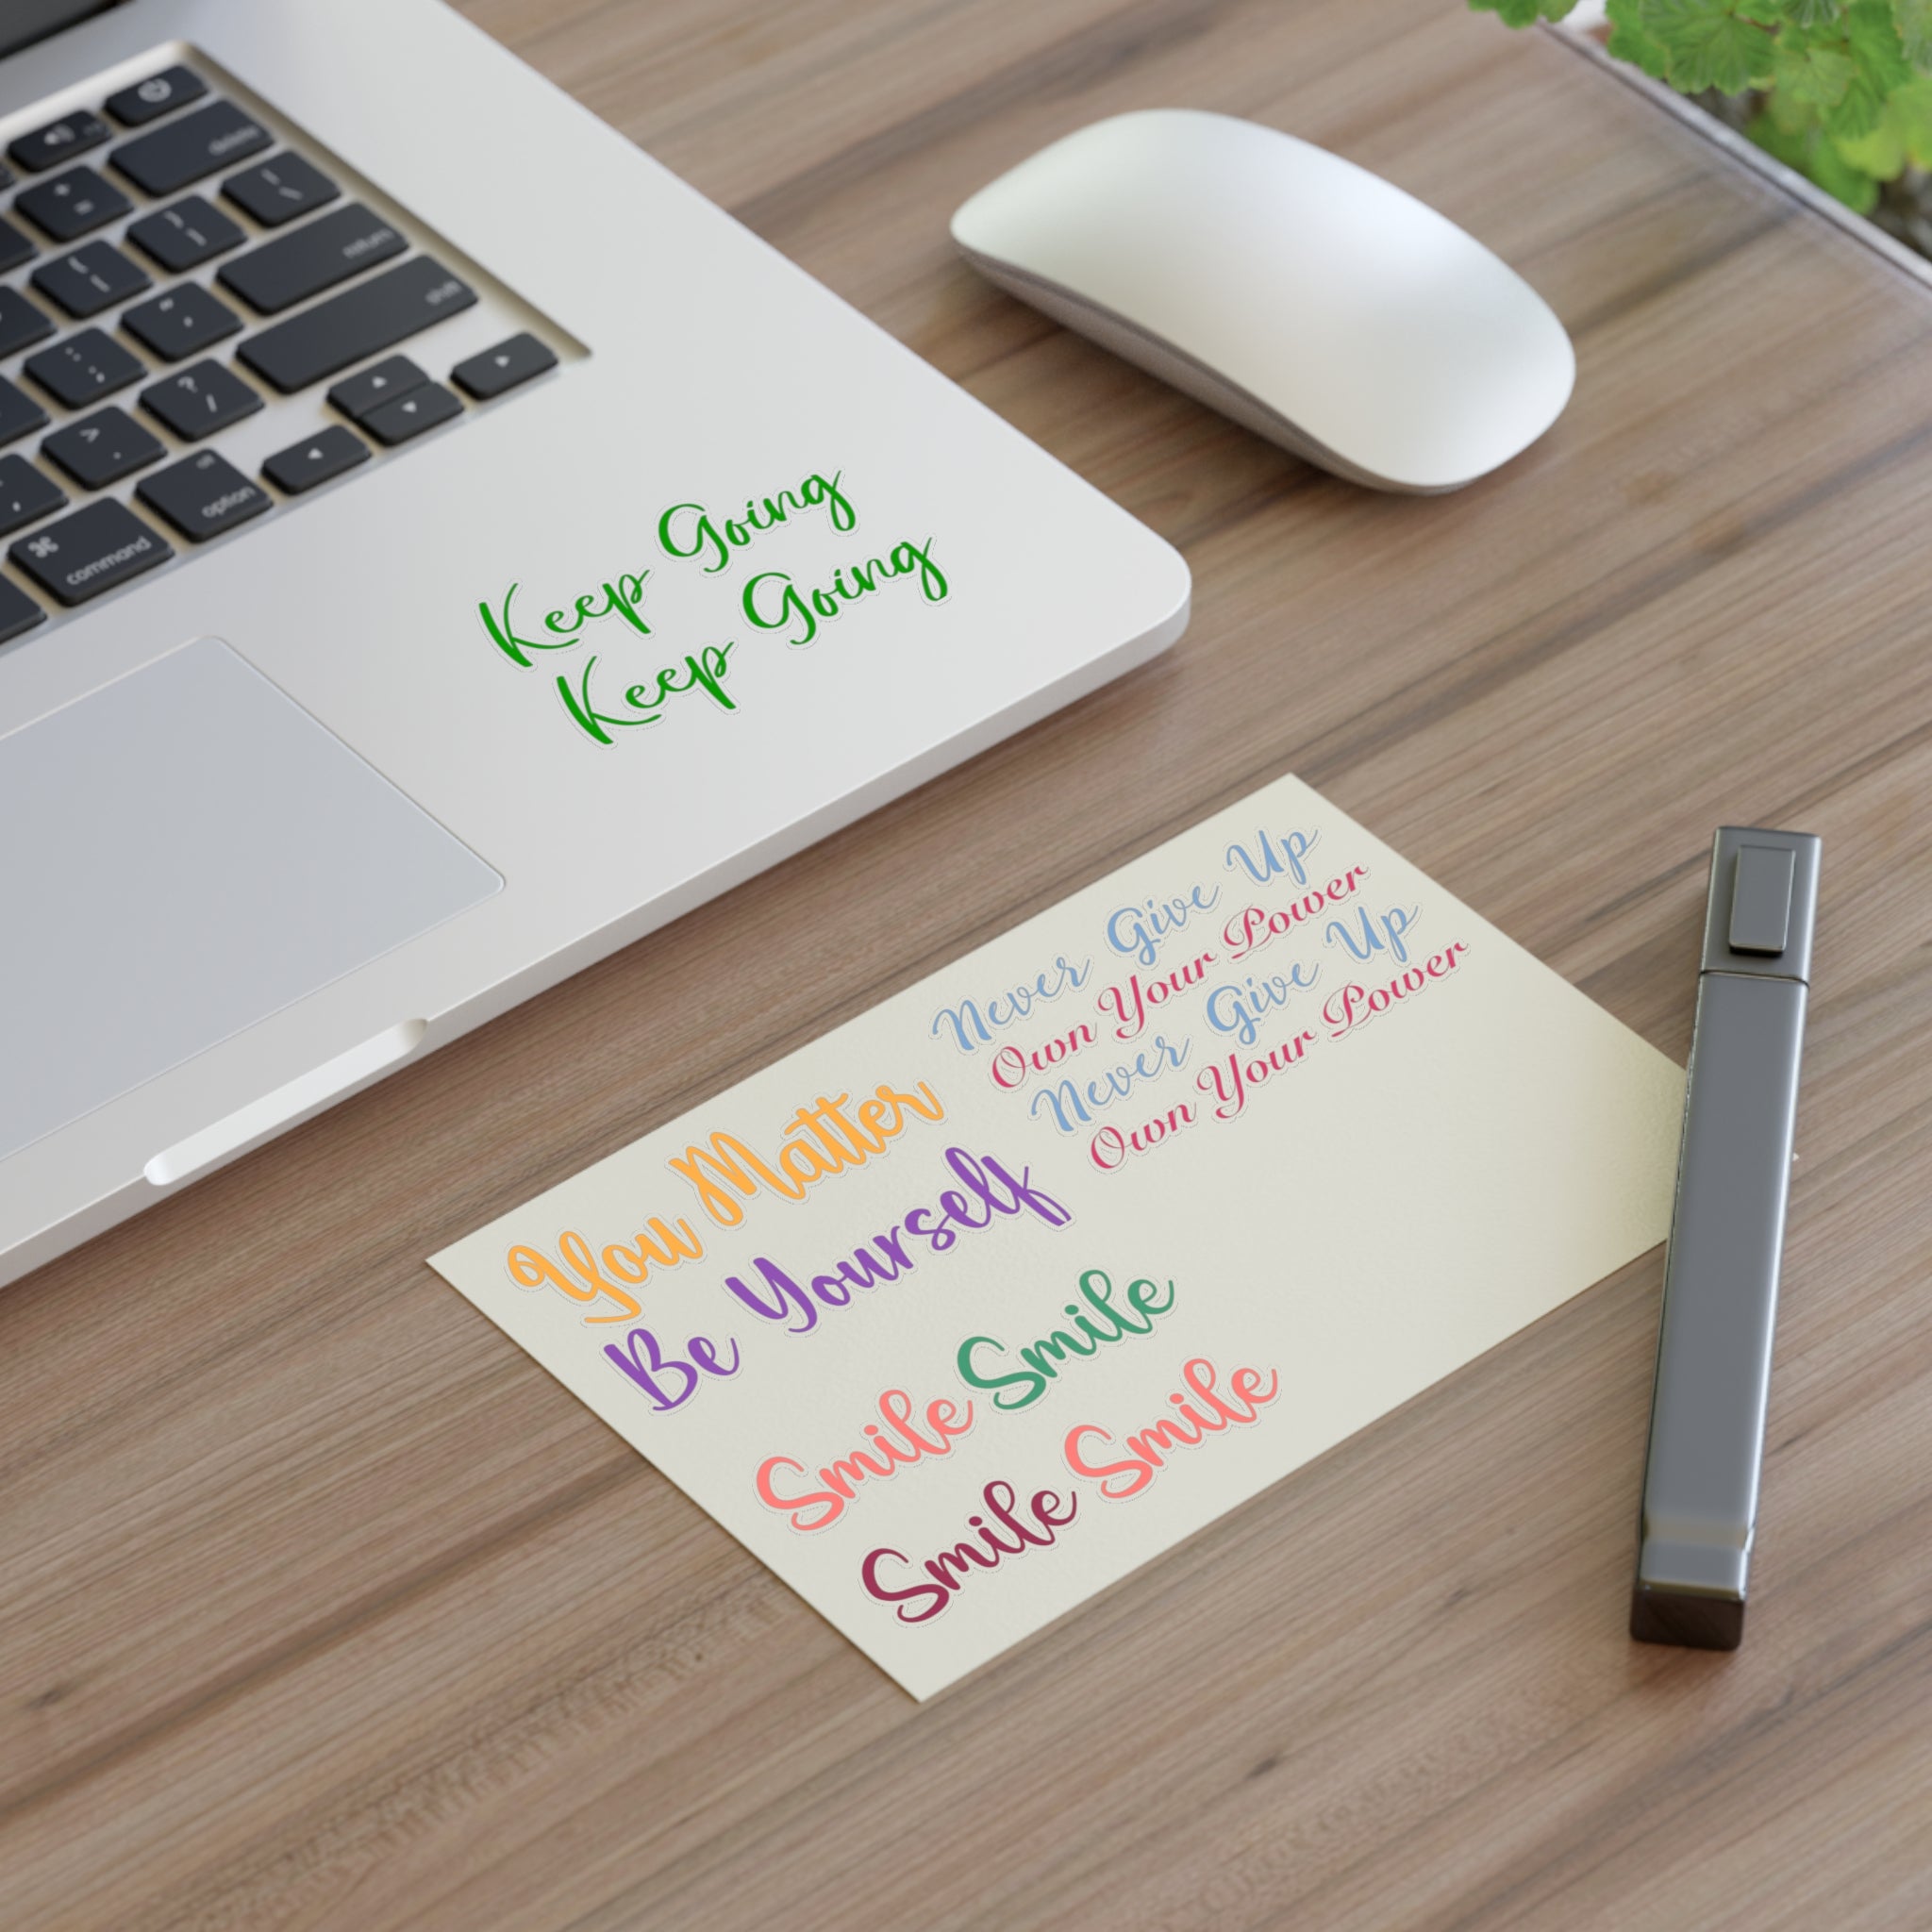 delete
return
shift
option
command
Keep Going
Keep Going
Never Give Up
Own Your Power
Never Give Up
Own Your Power
You Matter
Be Yourself
Smile Smile
Smile Smile